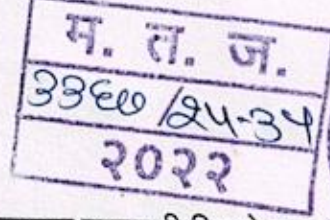 म. त. ज.
३३६७ /२५-३५
२०२२